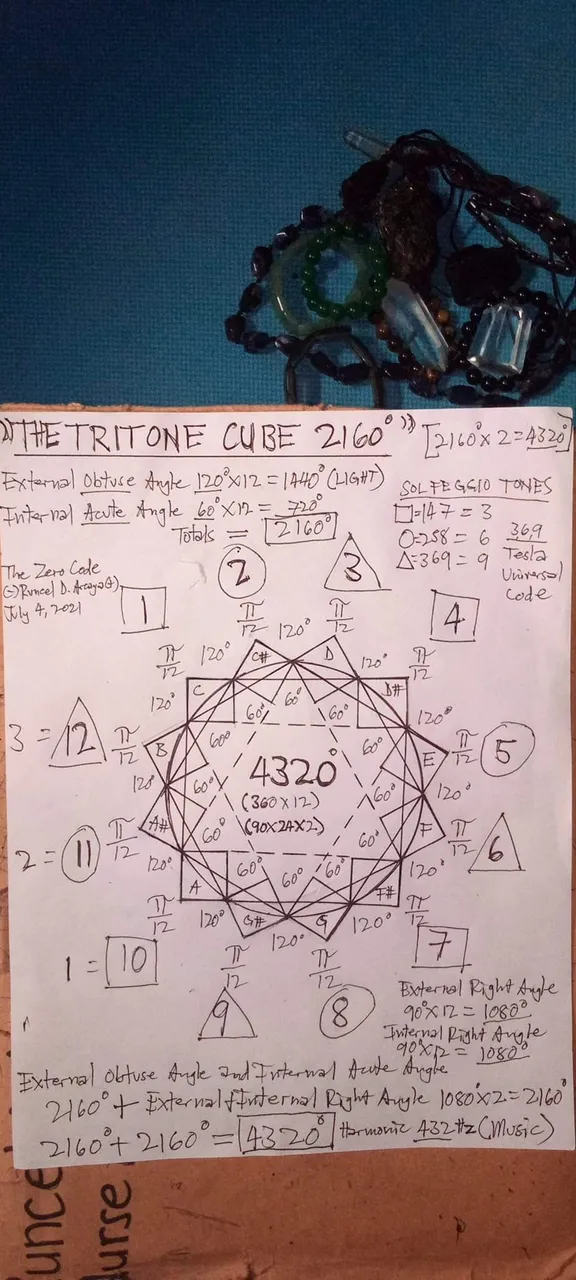 THE TRITONE CUBE 2160° [2160°x2=4320°]
External Obtuse Angle 120°x12=1440° (LIGHT)
Internal Acute Angle 60°x12=720°
Totals = 2160°
SOLFEGGIO TONES
□=147=3
○=258=6
△=369=9
369
Tesla
Universal
Code
The Zero Code
July 4, 2021
1
2
3
4
π/12 120° π/12
π/12 120° C# D 120° π/12
120° C 60° 60° 60° D# 120°
3 = 12 π/12 B 60° 60° E π/12 5
120° 60° 4320° 60° 120°
(360x12)
(90x24x2)
2 = 11 π/12 A# 60° 60° F π/12 6
120° A 60° 60° 60° F# 120°
π/12 120° G# 120° G 120° π/12
π/12 π/12
1 = 10
7
9
8
External Right Angle
90°x12=1080°
Internal Right Angle
90°x12=1080°
External Obtuse Angle and Internal Acute Angle
2160° + External & Internal Right Angle 1080°x2=2160°
2160°+2160°=4320° Harmonic 432Hz (Music)
unce
urse